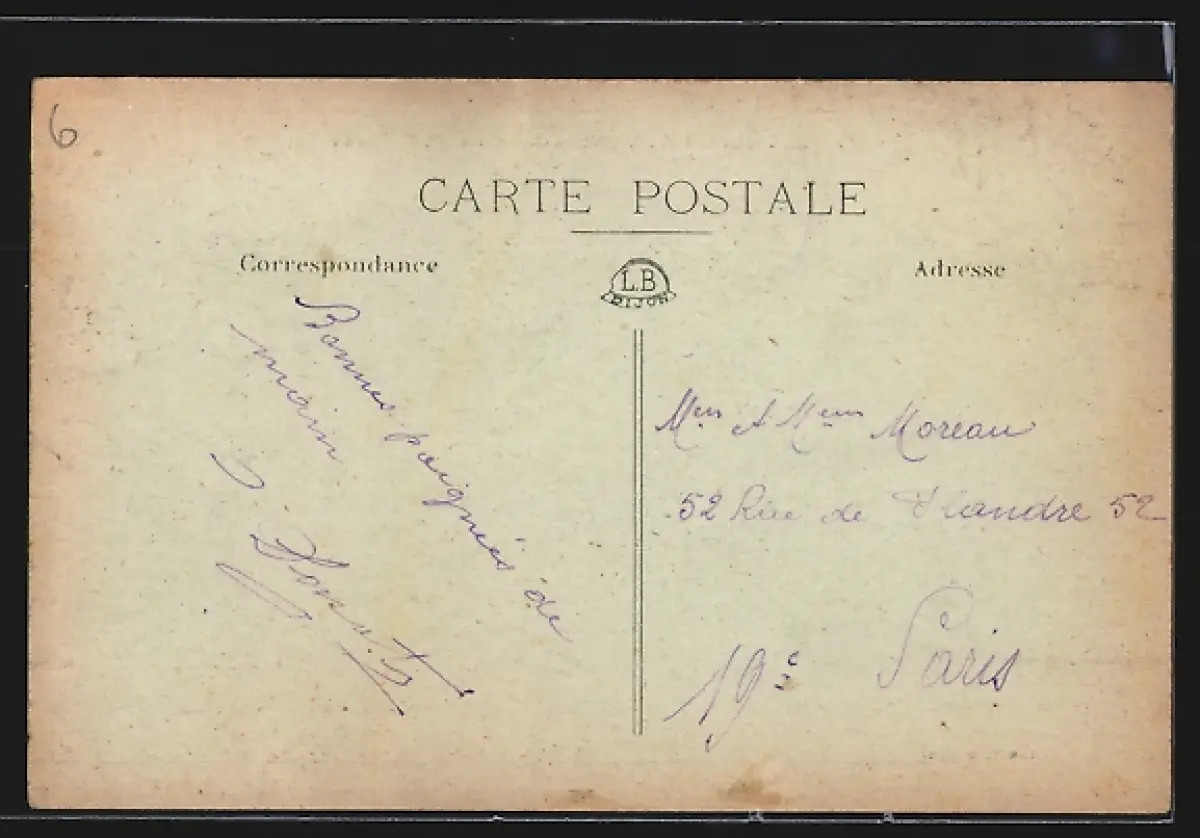 6
CARTE POSTALE
Correspondance
L.B
DIJON
Adresse
Bonnes poignées de
main
Moreau
52 Rue de Flandre 52
19e Paris